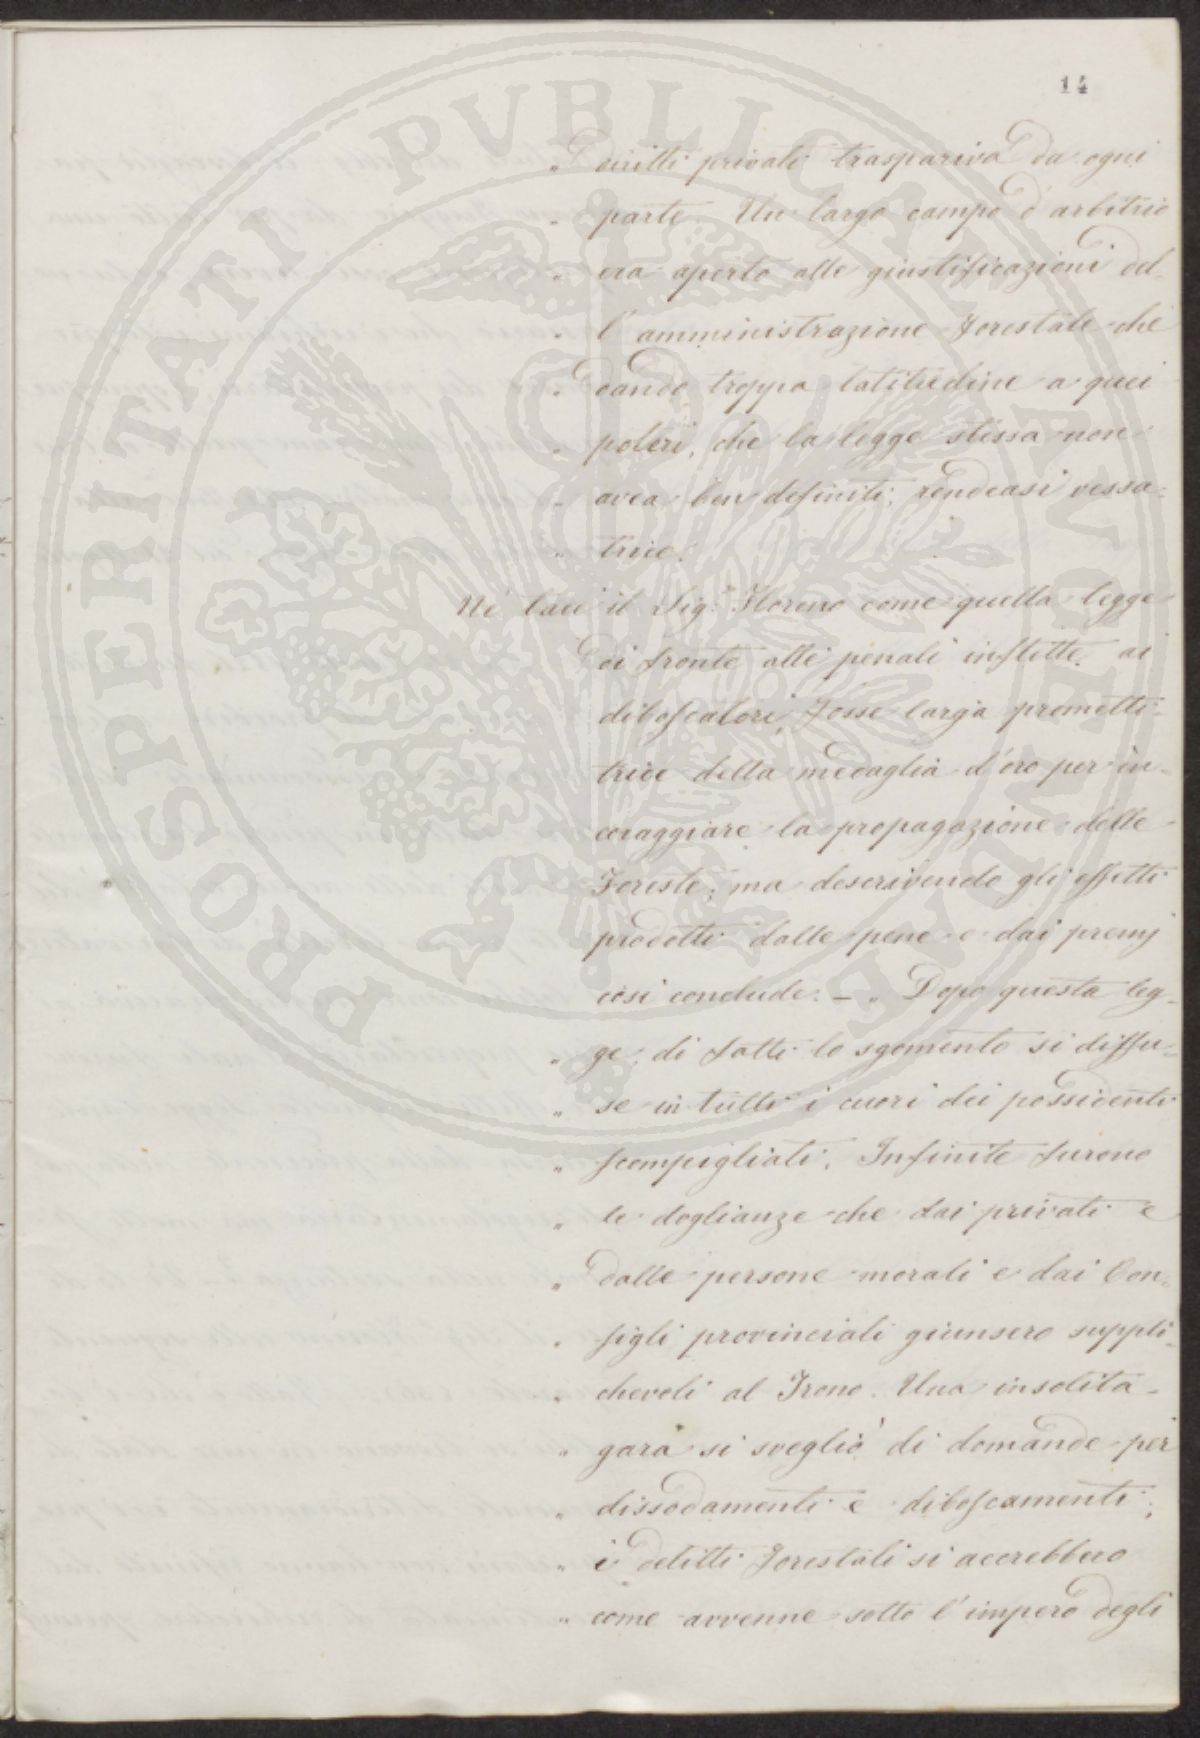 14
" diritti privati traspariva da ogni
" parte. Un largo campo d'arbitrio
" era aperto alle giustificazioni del-
" l'amministrazione Forestale che
" dando troppa latitudine a quei
" poteri, che la legge stessa non
" avea ben definiti; rendeasi vessa-
" trice.
Nè tace il Sig. Floreno come quella legge
di fronte alle penali inflitte ai
diboscatori, fosse larga prometti-
trice della medaglia d'oro per in-
coraggiare la propagazione delle
Foreste; ma descrivendo gli effetti
prodotti dalle pene e dai premj
così conclude: — " Dopo questa leg-
" ge di fatti lo sgomento si diffu-
" se in tutti i cuori dei possidenti
" scompigliati. Infinite furono
" le doglianze che dai privati e
" dalle persone morali e dai Con-
" sigli provinciali giunsero suppli-
" chevoli al Trono. Una insolita
" gara si svegliò di domande per
" dissodamenti e diboscamenti;
" i delitti forestali si accrebbero
" come avvenne sotto l'impero degli
PROSPERITATI PVBLICAE AVGENDAE